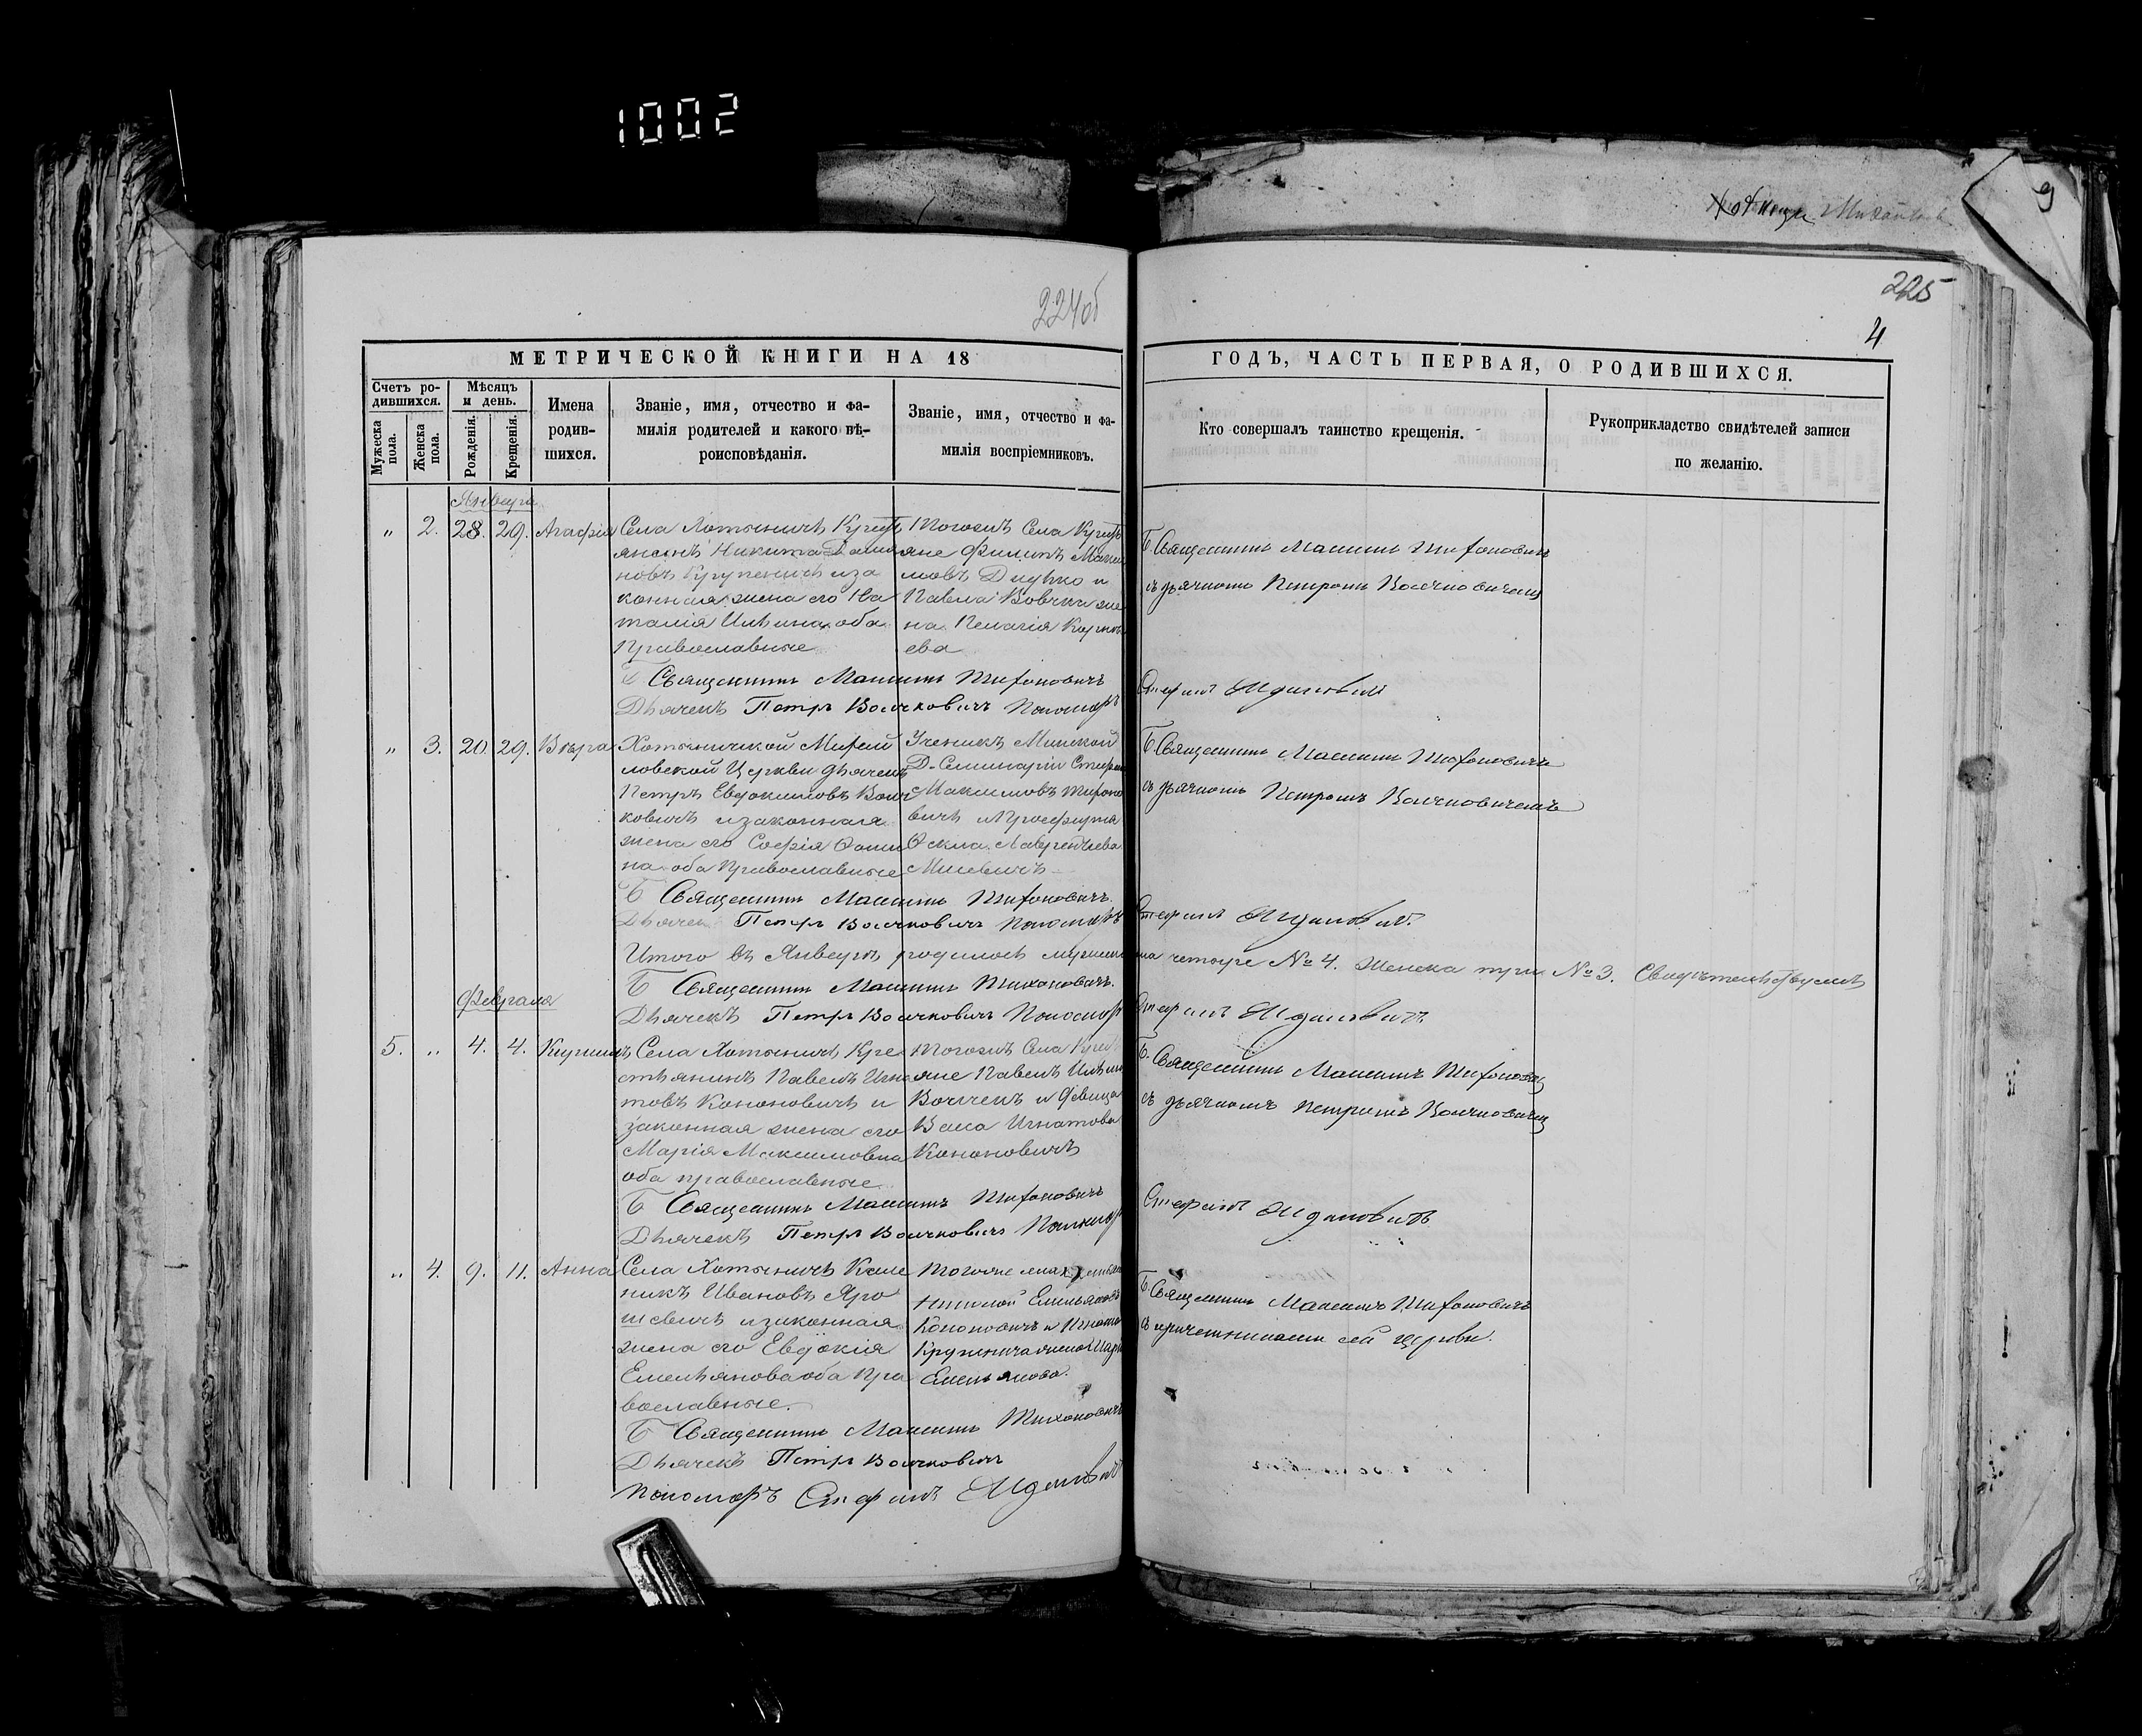 1002
224об
225
4
МЕТРИЧЕСКОЙ КНИГИ НА 18
ГОДЪ, ЧАСТЬ ПЕРВАЯ, О РОДИВШИХСЯ.
Счетъ ро-
дившихся.
Мужеска пола.
Женска пола.
Мѣсяцъ
и день.
Рожденія.
Крещенія.
Имена
родив-
шихся.
Званіе, имя, отчество и фа-
милія родителей и какого вѣ-
роисповѣданія.
Званіе, имя, отчество и фа-
милія воспріемниковъ.
Кто совершалъ таинство крещенія.
Рукоприкладство свидѣтелей записи
по желанію.
Января
" 2. 28. 29. Агафія
Села Хотыничъ Крест
янинъ Никита
новъ Крупеничъ и за
конная жена его На
талія Ильина, оба
Православные
Тогожъ Села Крестъ
яне Филипъ Макси
мовъ Дидько и
Павла Вовчка же
на Пелагія Корнѣ
ева
Священникъ Максимъ Тихоновичъ
съ дьячкомъ Петромъ Волчковичемъ
Священникъ Максимъ Тихоновичъ
Дьячекъ Петръ Волчковичъ Пономарь Стефанъ Ждановичъ
" 3. 20. 29. Вѣра
Хотыничской Михай
ловской Церкви дьячекъ
Петръ Евдокимовъ Волч
ковичъ и законная
жена его Софія Фоми
на оба Православные
Ученикъ Минской
Д. Семинаріи Стефан
Максимовъ Тихоно
вичъ и Просфирня
Фекла Лаврентіева
Мисевичъ
Священникъ Максимъ Тихоновичъ
съ дьячкомъ Петромъ Волчковичемъ
Священникъ Максимъ Тихоновичъ.
Дьячекъ Петръ Волчковичъ Пономарь Стефанъ Ждановичъ.
Итого въ Январѣ родилось мужеска пола четыре №4. Женска три №3. Свидѣтельствуемъ
Священникъ Максимъ Тихоновичъ.
Дьячекъ Петръ Волчковичъ Пономарь Стефанъ Ждановичъ
Февраля
5. " 4. 4. Кириллъ
Села Хотыничъ Кре
стьянинъ Павелъ Игна
товъ Кононовичъ и
законная жена его
Марія Максимовна
оба православные
Тогожъ Села Крест
яне Павелъ Ильинъ
Волчекъ и девица
Васа Игнатова
Кононовичъ
Священникъ Максимъ Тихоновичъ
съ дьячкомъ Петромъ Волчковичемъ
Священникъ Максимъ Тихоновичъ
Дьячекъ Петръ Волчковичъ Пономарь Стефанъ Ждановичъ
" 4. 9. 11. Анна
Села Хотыничъ Кале
никъ Ивановъ Яро
шевичъ и законная
жена его Евдокія
Емельянова оба Пра
вославные.
Николай Емельяновъ
Кононовичъ и Игната
Крупенича жена
Емельянова.
Священникъ Максимъ Тихоновичъ
съ причетниками сей церкви.
Священникъ Максимъ Тихоновичъ
Дьячекъ Петръ Волчковичъ
Пономарь Стефанъ Ждановичъ